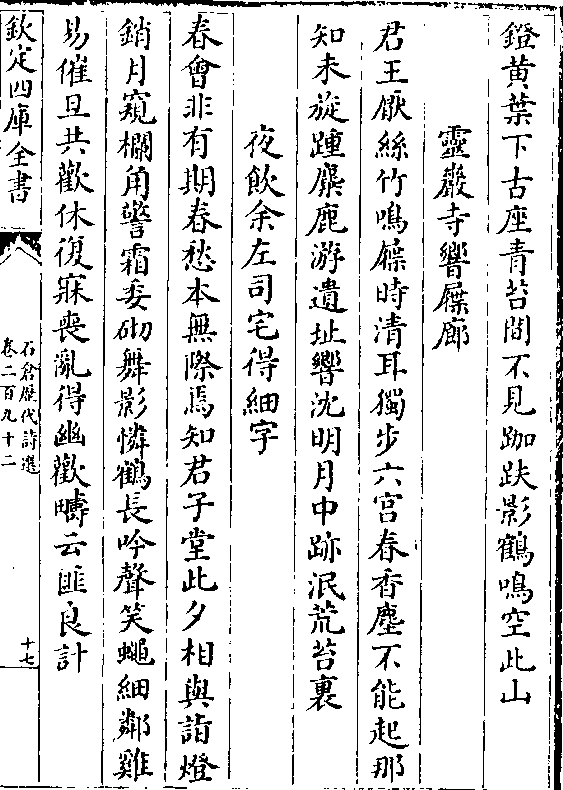 鐙黄葉下古座青苔間不見跏趺影鶴鳴空此山
靈巖寺響屧廊
君王厭絲竹鳴屧時清耳獨步六宫春香塵不能起那
知未旋踵麋鹿游遺址響沈明月中跡泯荒苔裏
夜飲余左司宅得細字
春會非有期春愁本無際焉知君子堂此夕相與詣燈
銷月窺欄角警霜委砌舞影憐鶴長吟聲笑蠅細鄰雞
易催旦共歡休復寐喪亂得幽歡疇云匪良計
欽定四庫全書
石倉歴代詩選
卷二百九十二
十七